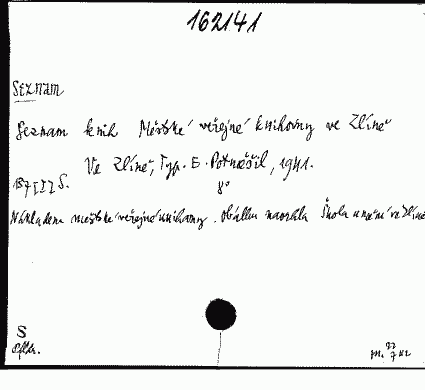 162141
Seznam
Seznam knih Městské veřejné knihovny ve Zlíně
Ve Zlíně, Typ. E. Potměšil, 1941.
137 [I] S. 8°
Nákladem městské veřejné knihovny. Obálku navrhla Škola umění ve Zlíně
S